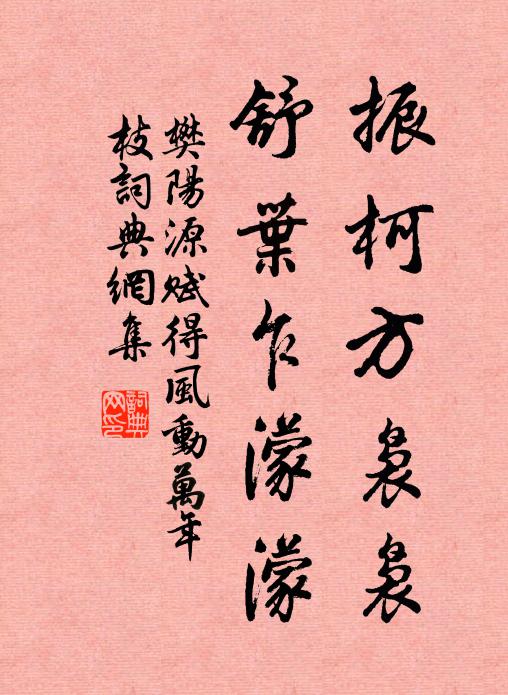 振柯方裊裊
舒葉乍濛濛
樊陽源賦得風動萬年
枝詞典網集
詞典
网印